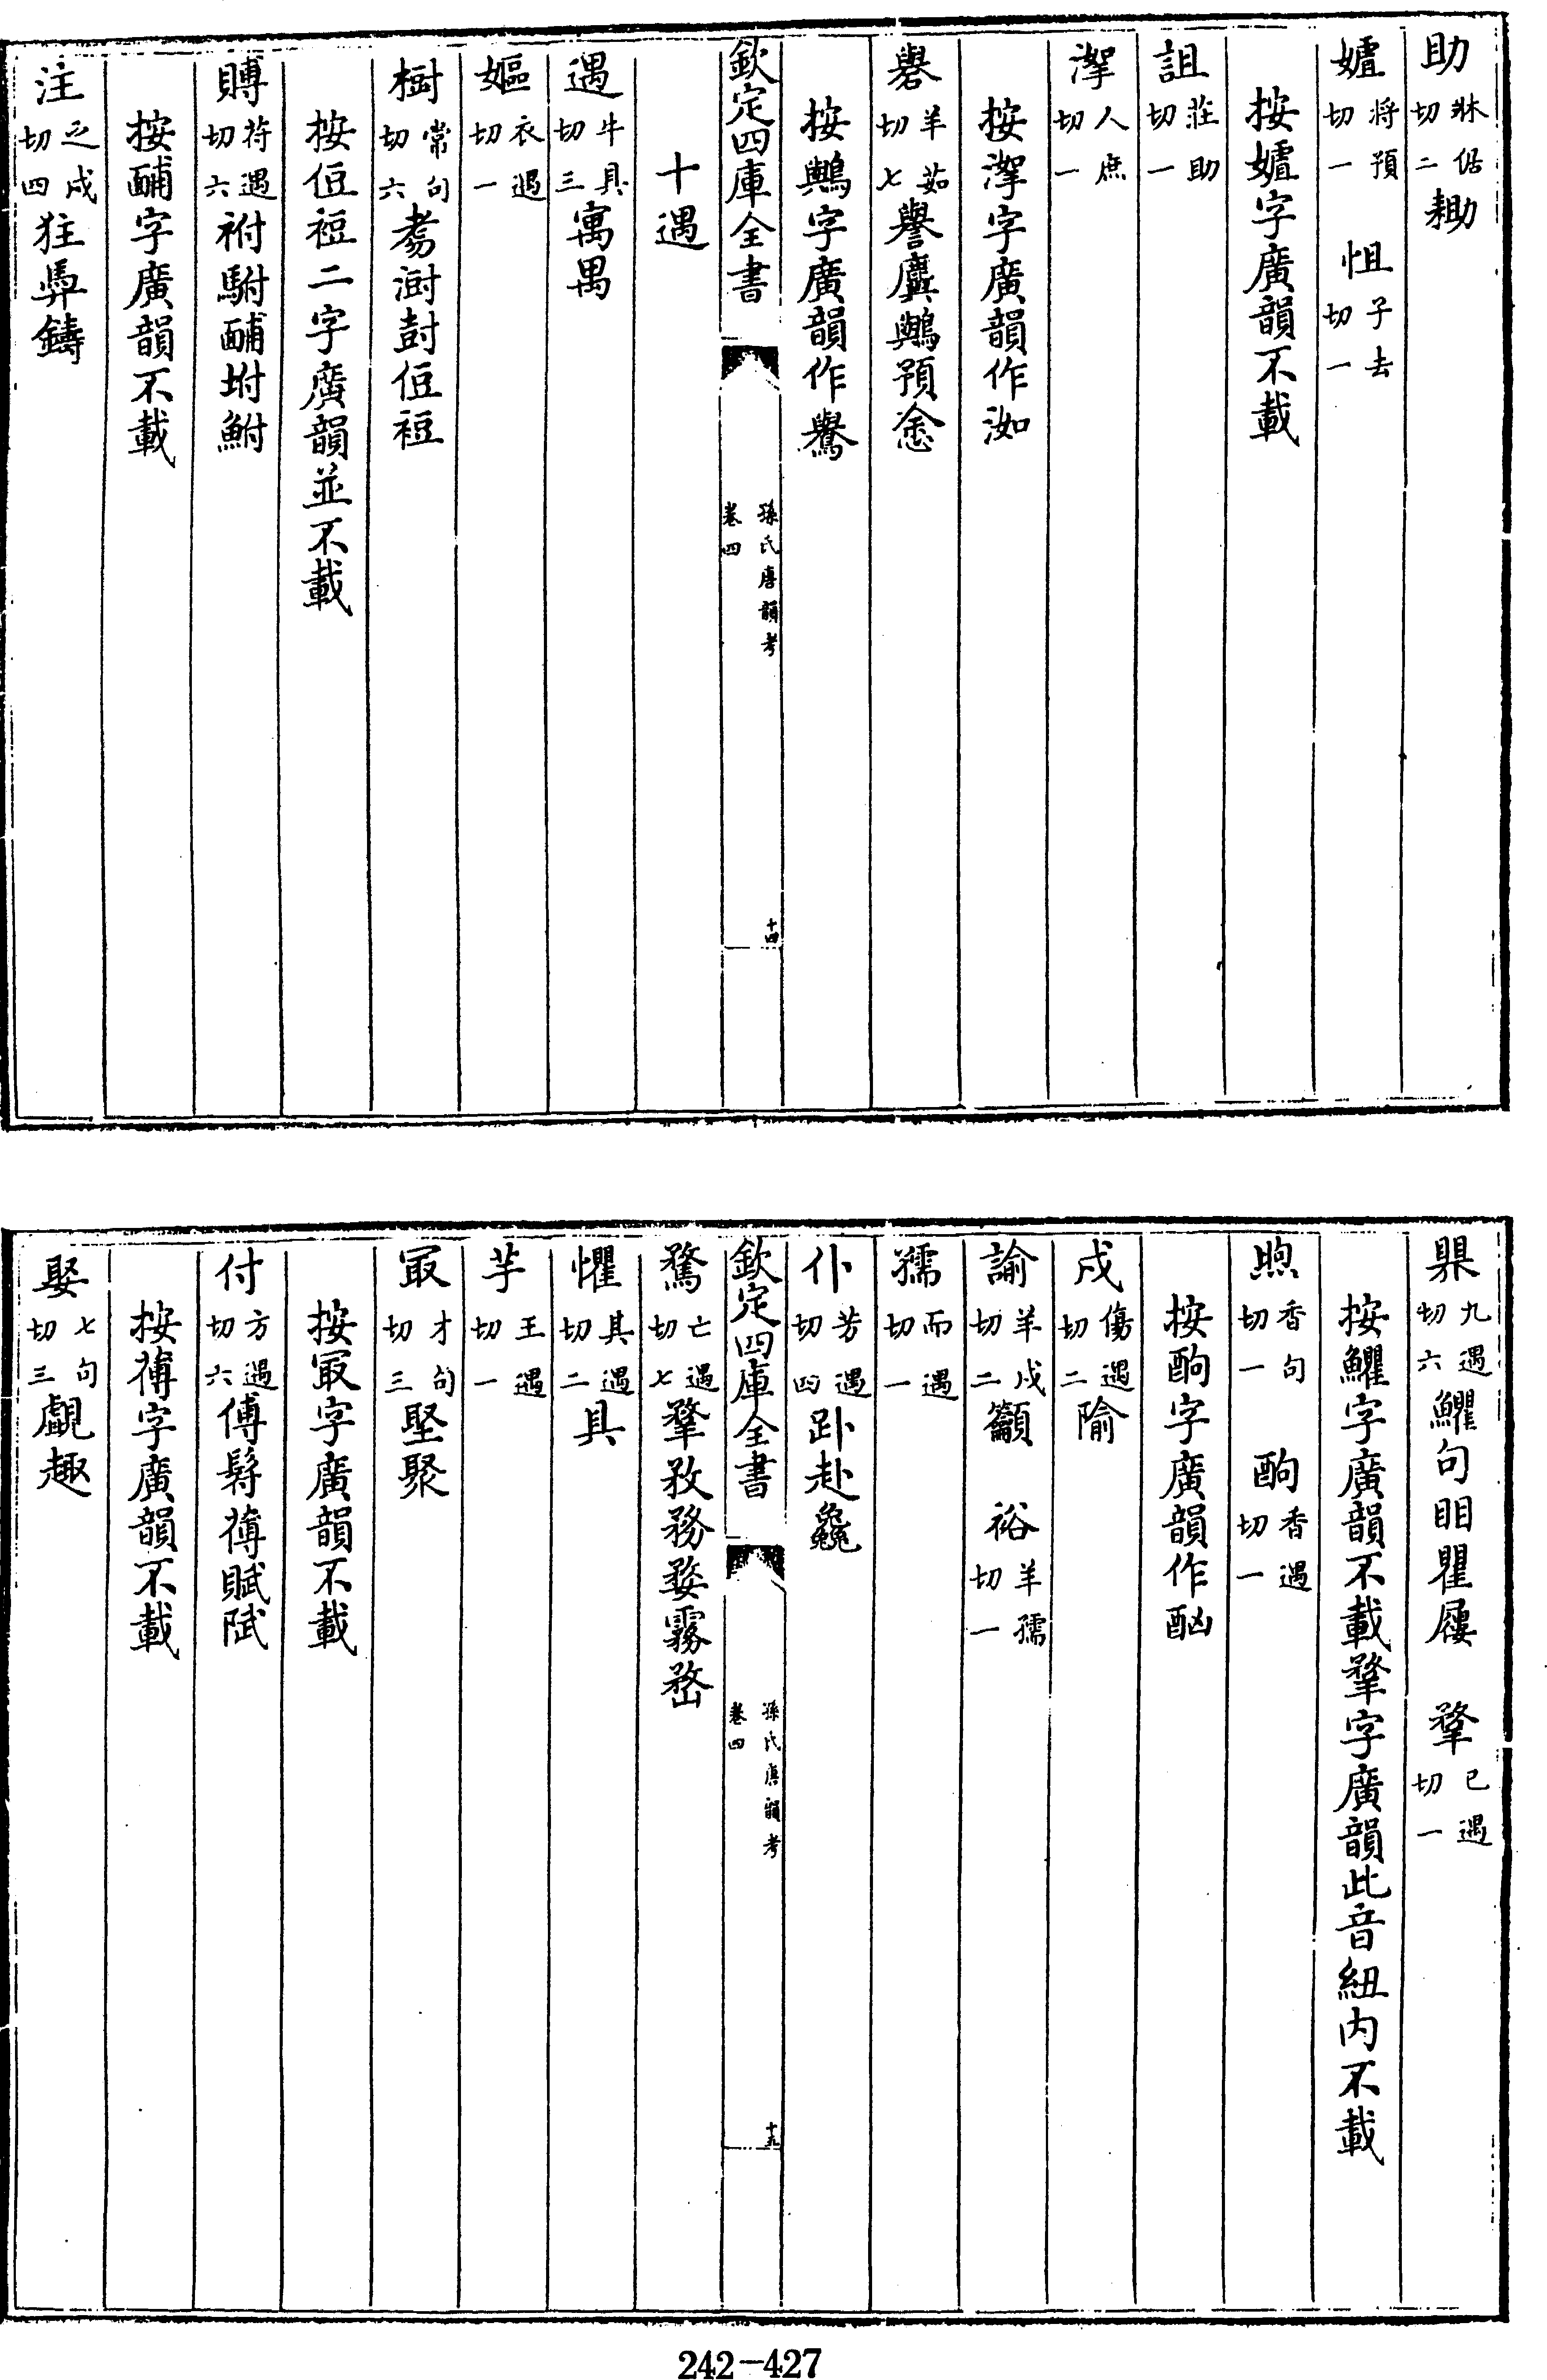 助牀倨切二耡
㜘將預切一　怚子去切一
按㜘字廣韻不載
詛莊助切一
㵖人庶切一
按㵖字廣韻作洳
礜羊茹切七譽䴡鸒預悆
按鸒字廣韻作鷽
欽定四庫全書
孫氏唐韻考
卷四
十四
十遇
遇牛具切三寓禺
嫗衣遇切一
樹常句切六㒱澍尌侸裋
按侸裋二字廣韻並不載
賻符遇切六祔駙酺坿鮒
按酺字廣韻不載
注之戍切四狂馵鑄
瞿九遇切六鸜句䀠瞿屨　鞪已遇切一
按鸜字廣韻不載鞪字廣韻此音紐内不載
煦香句切一　酗香遇切一
按酗字廣韻作酗
戍傷遇切二隃
諭羊戍切二籲　裕羊孺切一
孺而遇切一
仆芳遇切四䟔赴㲋
欽定四庫全書
孫氏唐韻考
卷四
十五
騖亡遇切七鞪敄務婺霧嵍
懼其遇切二具
芋王遇切一
冣才句切三堅聚
按冣字廣韻不載
付方遇切六傅䯱䙏賦陚
按䙏字廣韻不載
娶七句切三覰趣
242-427